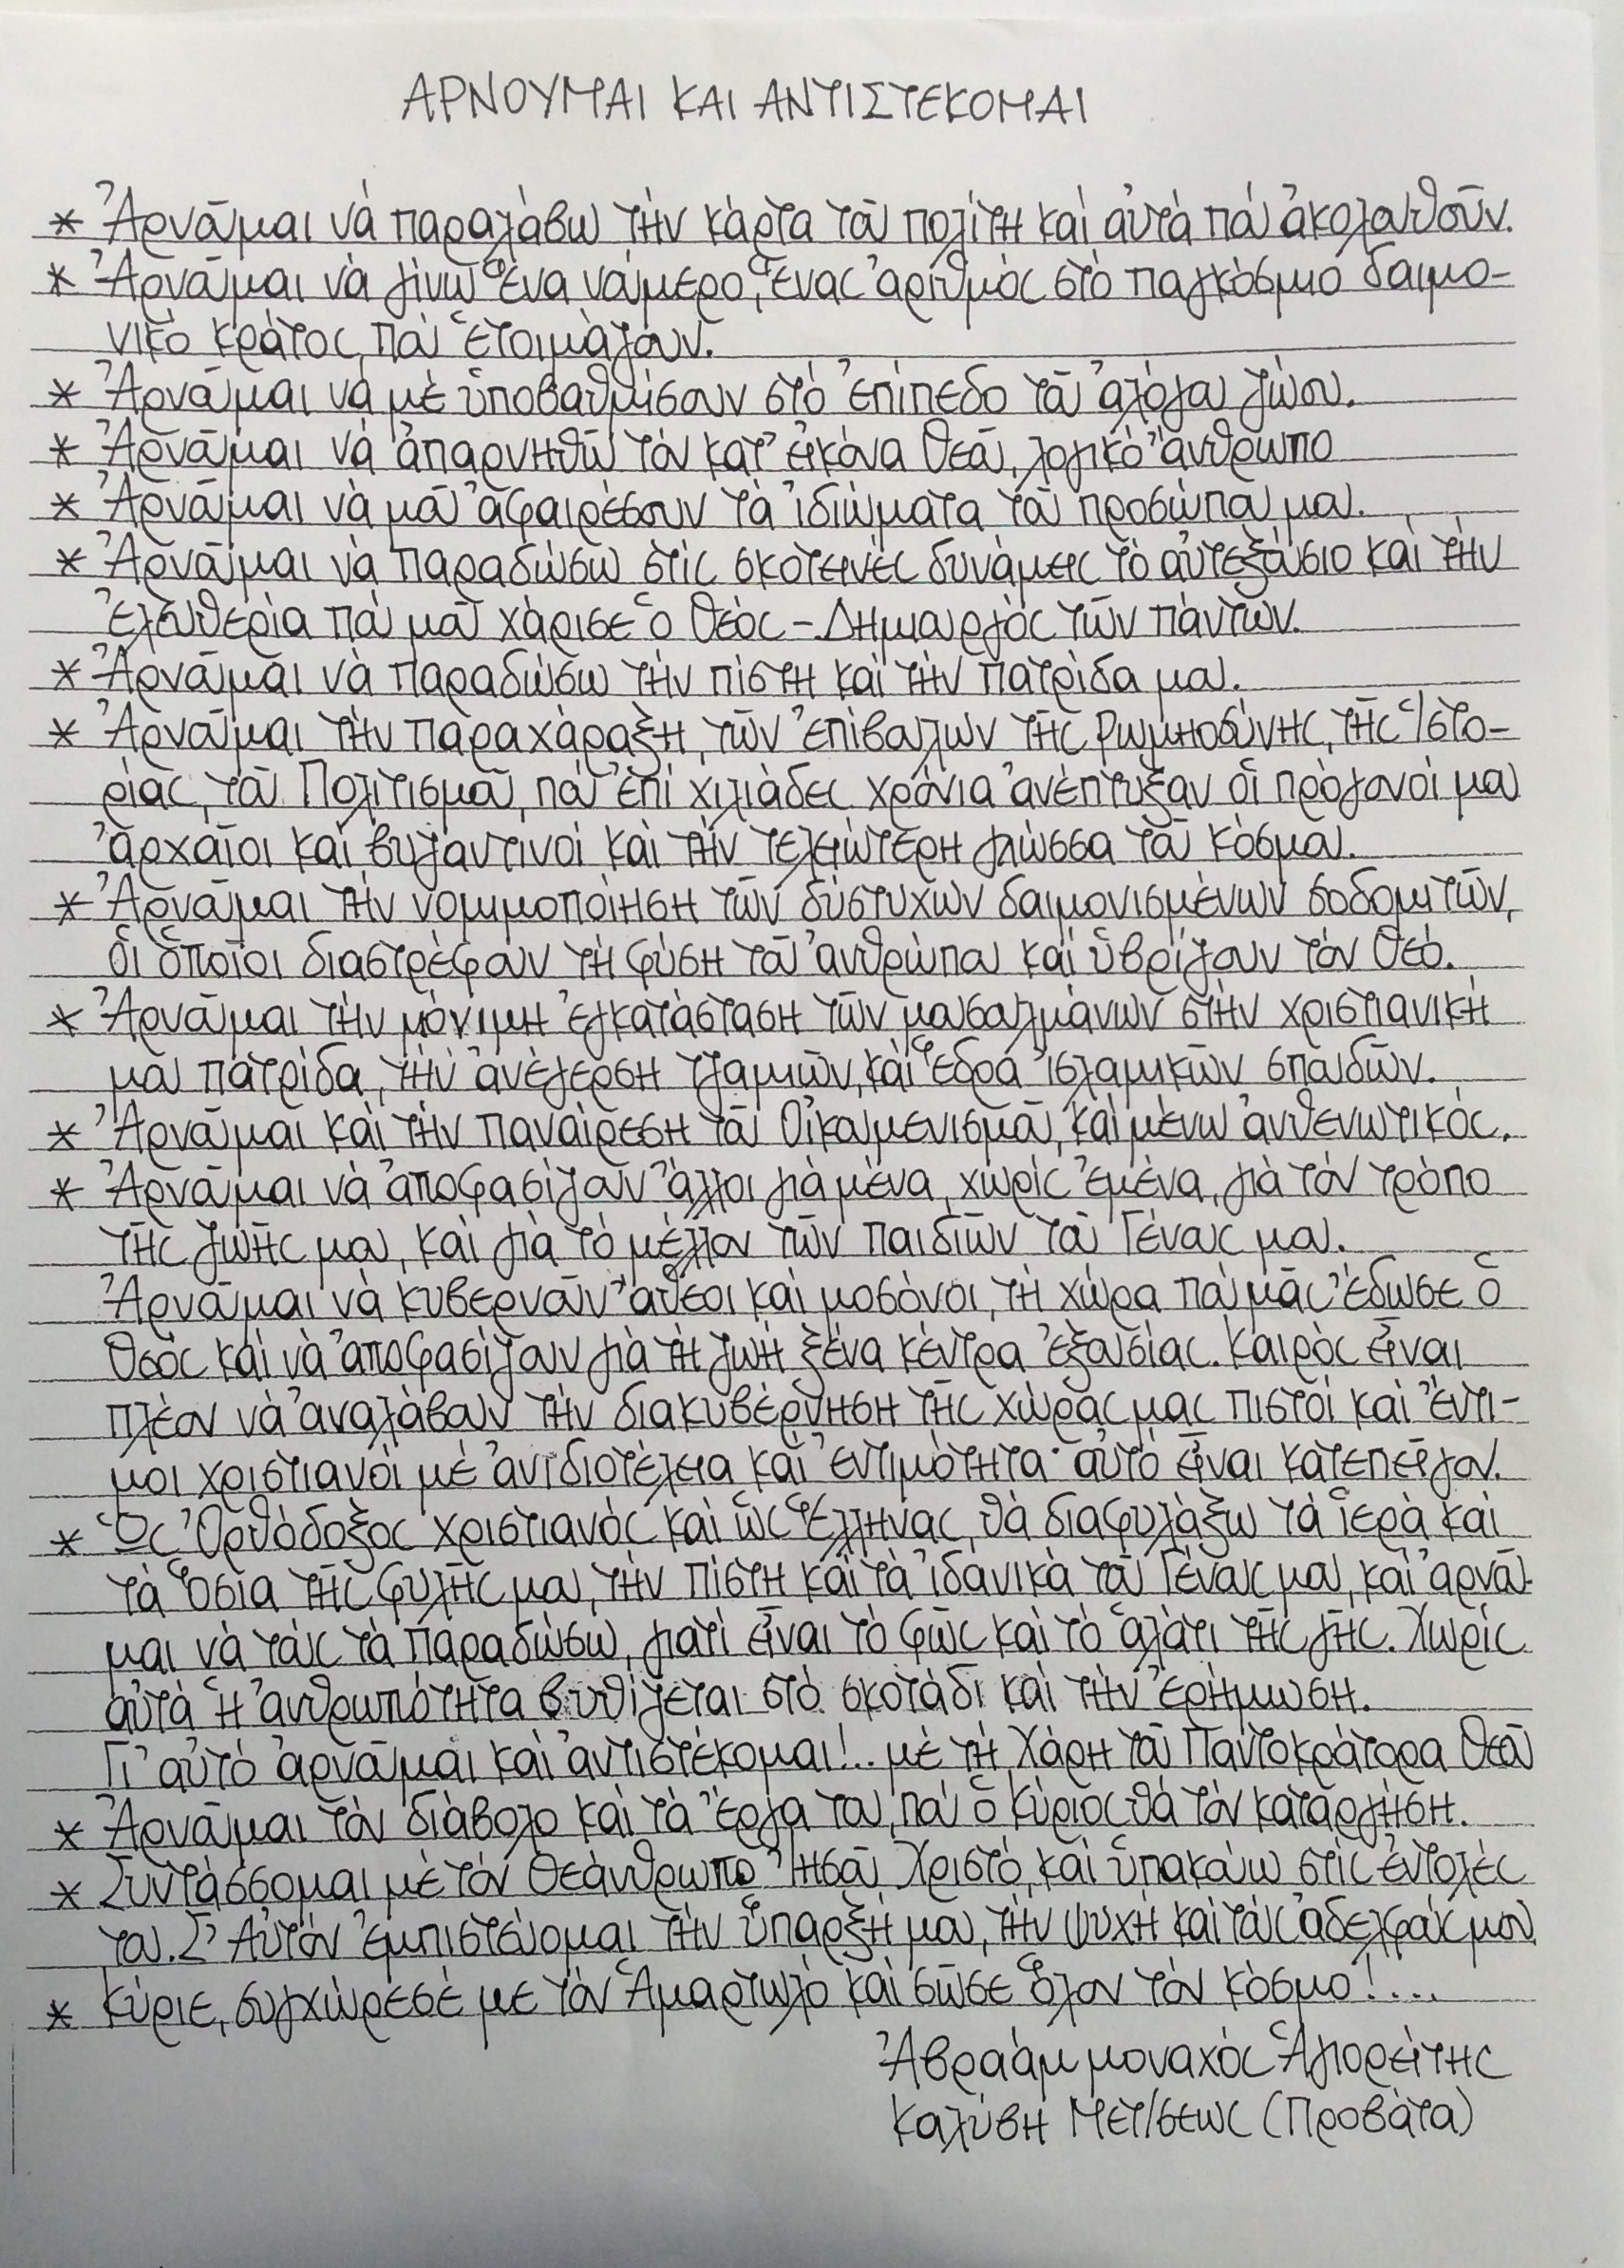 ΑΡΝΟΥΜΑΙ ΚΑΙ ΑΝΤΙΣΤΕΚΟΜΑΙ
* Ἀρνοῦμαι νά παραλάβω τήν κάρτα τοῦ πολίτη καί αὐτά πού ἀκολουθοῦν.
* Ἀρνοῦμαι νά γίνω ἕνα νούμερο, ἕνας ἀριθμός στό παγκόσμιο δαιμο-
νικό κράτος, πού ἑτοιμάζουν.
* Ἀρνοῦμαι νά μέ ὑποβαθμίσουν στό ἐπίπεδο τοῦ ἀλόγου ζώου.
* Ἀρνοῦμαι νά ἀπαρνηθῶ τόν κατ' εἰκόνα Θεοῦ, λογικό ἄνθρωπο
* Ἀρνοῦμαι νά μοῦ ἀφαιρέσουν τά ἰδιώματα τοῦ προσώπου μου.
* Ἀρνοῦμαι νά παραδώσω στίς σκοτεινές δυνάμεις τό αὐτεξούσιο καί τήν
ἐλευθερία πού μοῦ χάρισε ὁ Θεός - Δημιουργός τῶν πάντων.
* Ἀρνοῦμαι νά παραδώσω τήν πίστη καί τήν πατρίδα μου.
* Ἀρνοῦμαι τήν παραχάραξη, τῶν ἐπίβουλων τῆς Ρωμηοσύνης, τῆς Ἱστο-
ρίας, τοῦ Πολιτισμοῦ, πού ἐπί χιλιάδες χρόνια ἀνέπτυξαν οἱ πρόγονοί μου
ἀρχαῖοι καί βυζαντινοί καί τήν τελειώτερη γλώσσα τοῦ κόσμου.
* Ἀρνοῦμαι τήν νομιμοποίηση τῶν δύστυχων δαιμονισμένων σοδομιτῶν,
οἱ ὁποῖοι διαστρέφουν τή φύση τοῦ ἀνθρώπου καί ὑβρίζουν τόν Θεό.
* Ἀρνοῦμαι τήν μόνιμη ἐγκατάσταση τῶν μουσουλμάνων στήν χριστιανική
μου πατρίδα, τήν ἀνέγερση τζαμιῶν, καί ἕδρα ἰσλαμικῶν σπουδῶν.
* Ἀρνοῦμαι καί τήν παναίρεση τοῦ Οἰκουμενισμοῦ, καί μένω ἀνθενωτικός.
* Ἀρνοῦμαι νά ἀποφασίζουν ἄλλοι γιά μένα, χωρίς ἐμένα, γιά τόν τρόπο
τῆς ζωῆς μου, καί γιά τό μέλλον τῶν παιδιῶν τοῦ Γένους μου.
Ἀρνοῦμαι νά κυβερνοῦν ἄθεοι καί μασόνοι, τή χώρα πού μᾶς ἔδωσε ὁ
Θεός καί νά ἀποφασίζουν γιά τή ζωή ξένα κέντρα ἐξουσίας. Καιρός εἶναι
πλέον νά ἀναλάβουν τήν διακυβέρνηση τῆς χώρας μας πιστοί καί ἔντι-
μοι χριστιανοί μέ ἀνιδιοτέλεια καί ἐντιμότητα· αὐτό εἶναι κατεπεῖγον.
* Ὡς Ὀρθόδοξος χριστιανός καί ὡς Ἕλληνας, θά διαφυλάξω τά ἱερά καί
τά ὅσια τῆς φυλῆς μου, τήν πίστη καί τά ἰδανικά τοῦ Γένους μου, καί ἀρνοῦ-
μαι νά τούς τά παραδώσω, γιατί εἶναι τό φῶς καί τό ἁλάτι τῆς γῆς. Χωρίς
αὐτά ἡ ἀνθρωπότητα βυθίζεται στό σκοτάδι καί τήν ἐρήμωση.
Γι' αὐτό ἀρνοῦμαι καί ἀντιστέκομαι!.. μέ τή Χάρη τοῦ Παντοκράτορα Θεοῦ
* Ἀρνοῦμαι τόν διάβολο καί τά ἔργα του, πού ὁ Κύριος θά τόν καταργήση.
* Συντάσσομαι μέ τόν Θεάνθρωπο Ἰησοῦ Χριστό, καί ὑπακούω στίς ἐντολές
του. Σ' Αὐτόν ἐμπιστεύομαι τήν ὕπαρξή μου, τήν ψυχή καί τούς ἀδελφούς μου.
* Κύριε, συγχώρεσέ με τόν Ἁμαρτωλό καί σῶσε ὅλον τόν κόσμο!...
Ἀβραάμ μοναχός Ἁγιορείτης
Καλύβη Μετ/σεως (Προβάτα)